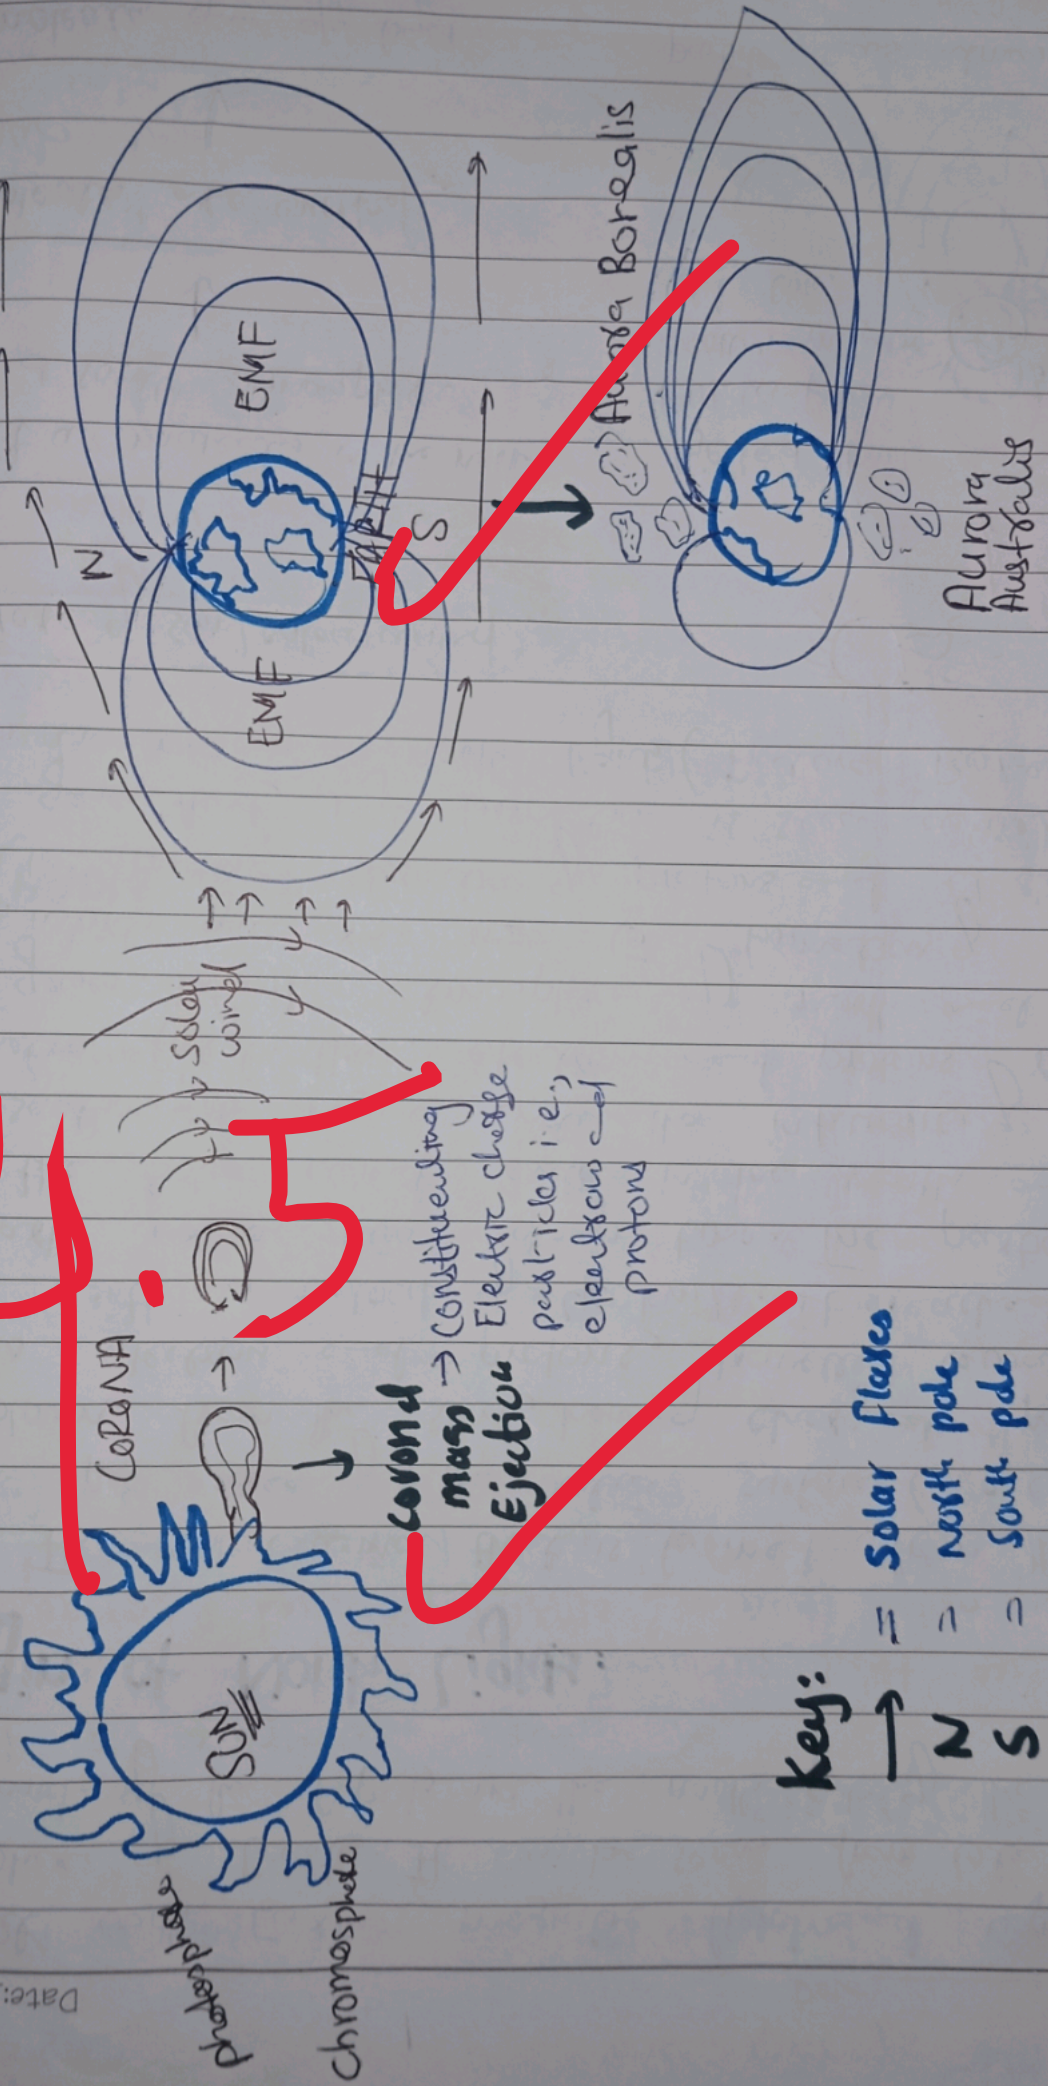 Date:
photosphase
chromosphere
SUN
CORONA
Coronal
mass
Ejection
→ Constitueuting
Electric charge
particles i.e;
electrons and
protons
Solar
wind
EMF
EMF
N
S
EARTH
Aurora Borealis
Aurora
Australis
Key:
→ = Solar Flares
N = North pole
S = South pole
.5